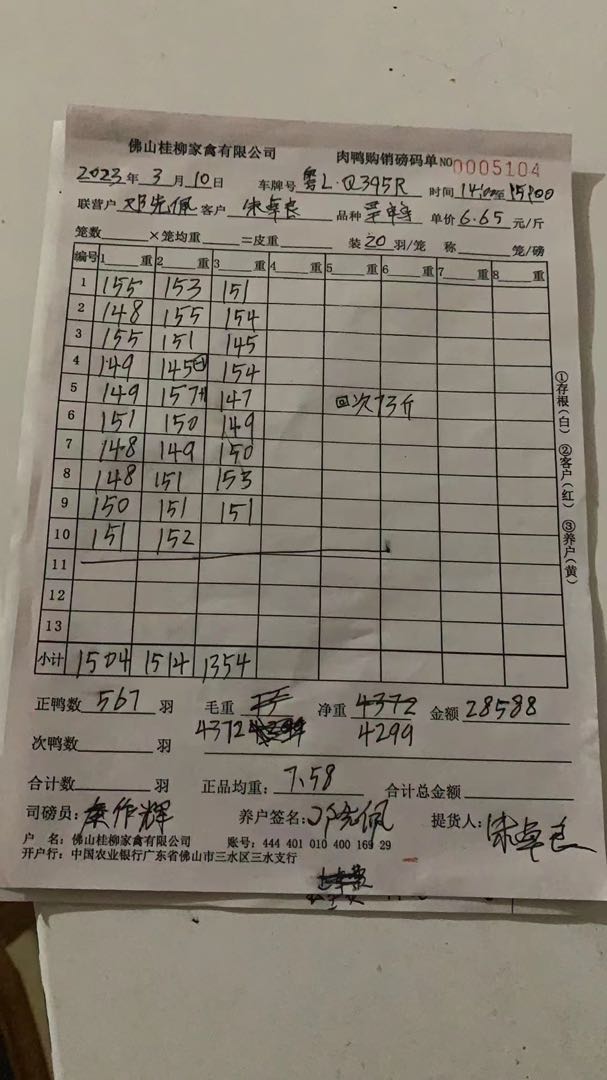 佛山桂柳家禽有限公司 肉鸭购销磅码单 NO 0005104
2023年3月10日 车牌号 粤L·Q395R 时间 14:00至15:00
联营户 邓宪佩 客户 宋卓良 品种 单价 6.65 元/斤
笼数 ×笼均重 =皮重 装 20 羽/笼 称 笼/磅
编号 1 重 2 重 3 重 4 重 5 重 6 重 7 重 8 重
1 155 153 151
2 148 155 154
3 155 151 145
4 149 145 154
5 149 157 147 回次73斤
6 151 150 149
7 148 149 150
8 148 151 153
9 150 151 151
10 151 152
11
12
13
小计 1504 1514 1354
①存根(白) ②客户(红) ③养户(黄)
正鸭数 567 羽 毛重 净重 4372 金额 28588
次鸭数 羽 4372 4299
合计数 羽 正品均重: 7.58 合计总金额
司磅员: 秦作辉 养户签名: 邓宪佩 提货人: 宋卓良
户 名: 佛山桂柳家禽有限公司 账号: 444 401 010 400 169 29
开户行: 中国农业银行广东省佛山市三水区三水支行